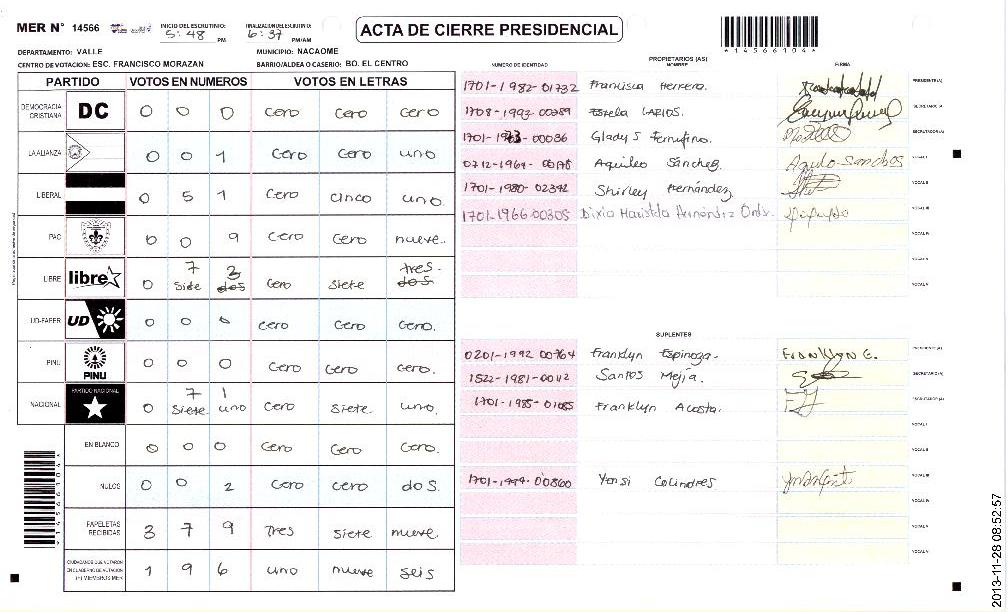 MER N° 14566 INICIO DEL ESCRUTINIO: 5:48 PM FINALIZACION DEL ESCRUTINIO: 6:37 PM/AM
ACTA DE CIERRE PRESIDENCIAL
*14566104*
DEPARTAMENTO: VALLE MUNICIPIO: NACAOME
CENTRO DE VOTACION: ESC. FRANCISCO MORAZAN BARRIO/ALDEA O CASERIO: BO. EL CENTRO
PARTIDO VOTOS EN NUMEROS VOTOS EN LETRAS
DEMOCRACIA CRISTIANA DC 0 0 0 Cero Cero Cero
LA ALIANZA 0 0 1 Cero Cero uno
LIBERAL 0 5 1 Cero Cinco uno.
PAC 0 0 9 Cero Cero nueve.
LIBRE libre 0 7 siete 3 dos Cero siete tres. dos.
UD-FAPER UD 0 0 0 Cero Cero Cero.
PINU PINU 0 0 0 Cero Cero Cero.
NACIONAL PARTIDO NACIONAL 0 7 siete 1 uno Cero siete uno.
EN BLANCO 0 0 0 Cero Cero Cero.
NULOS 0 0 2 Cero Cero dos.
PAPELETAS RECIBIDAS 3 7 9 Tres siete nueve.
CIUDADANOS QUE VOTARON EN CUADERNO DE VOTACION (+) MIEMBROS MER 1 9 6 uno nueve seis
PROPIETARIOS (AS)
NUMERO DE IDENTIDAD NOMBRE FIRMA
1701-1982-01732 Francisca Herrero. PRESIDENTE(A)
1708-1993-00289 Estela LARIOS. SECRETARIO(A)
Gladys Ferrufino. ESCRUTADOR(A)
Aquileo Sánchez. Aquileo Sanchez VOCAL I
1701-1980-02342 Shirley Hernández VOCAL II
1701-1966-00305 Dixia Maristela Hernández Ordz. VOCAL III
VOCAL IV
VOCAL V
VOCAL VI
SUPLENTES
0201-1992 00764 Franklyn Espinoza. FRANKLYN E. PRESIDENTE(A)
1522-1981-00112 Santos Mejía. SECRETARIO(A)
1701-1985-01085 Franklyn Acosta. ESCRUTADOR (A)
VOCAL I
VOCAL II
1701-1994-00860 Yensi Colindres VOCAL III
VOCAL IV
VOCAL V
VOCAL VI
2013-11-28 08:52:57